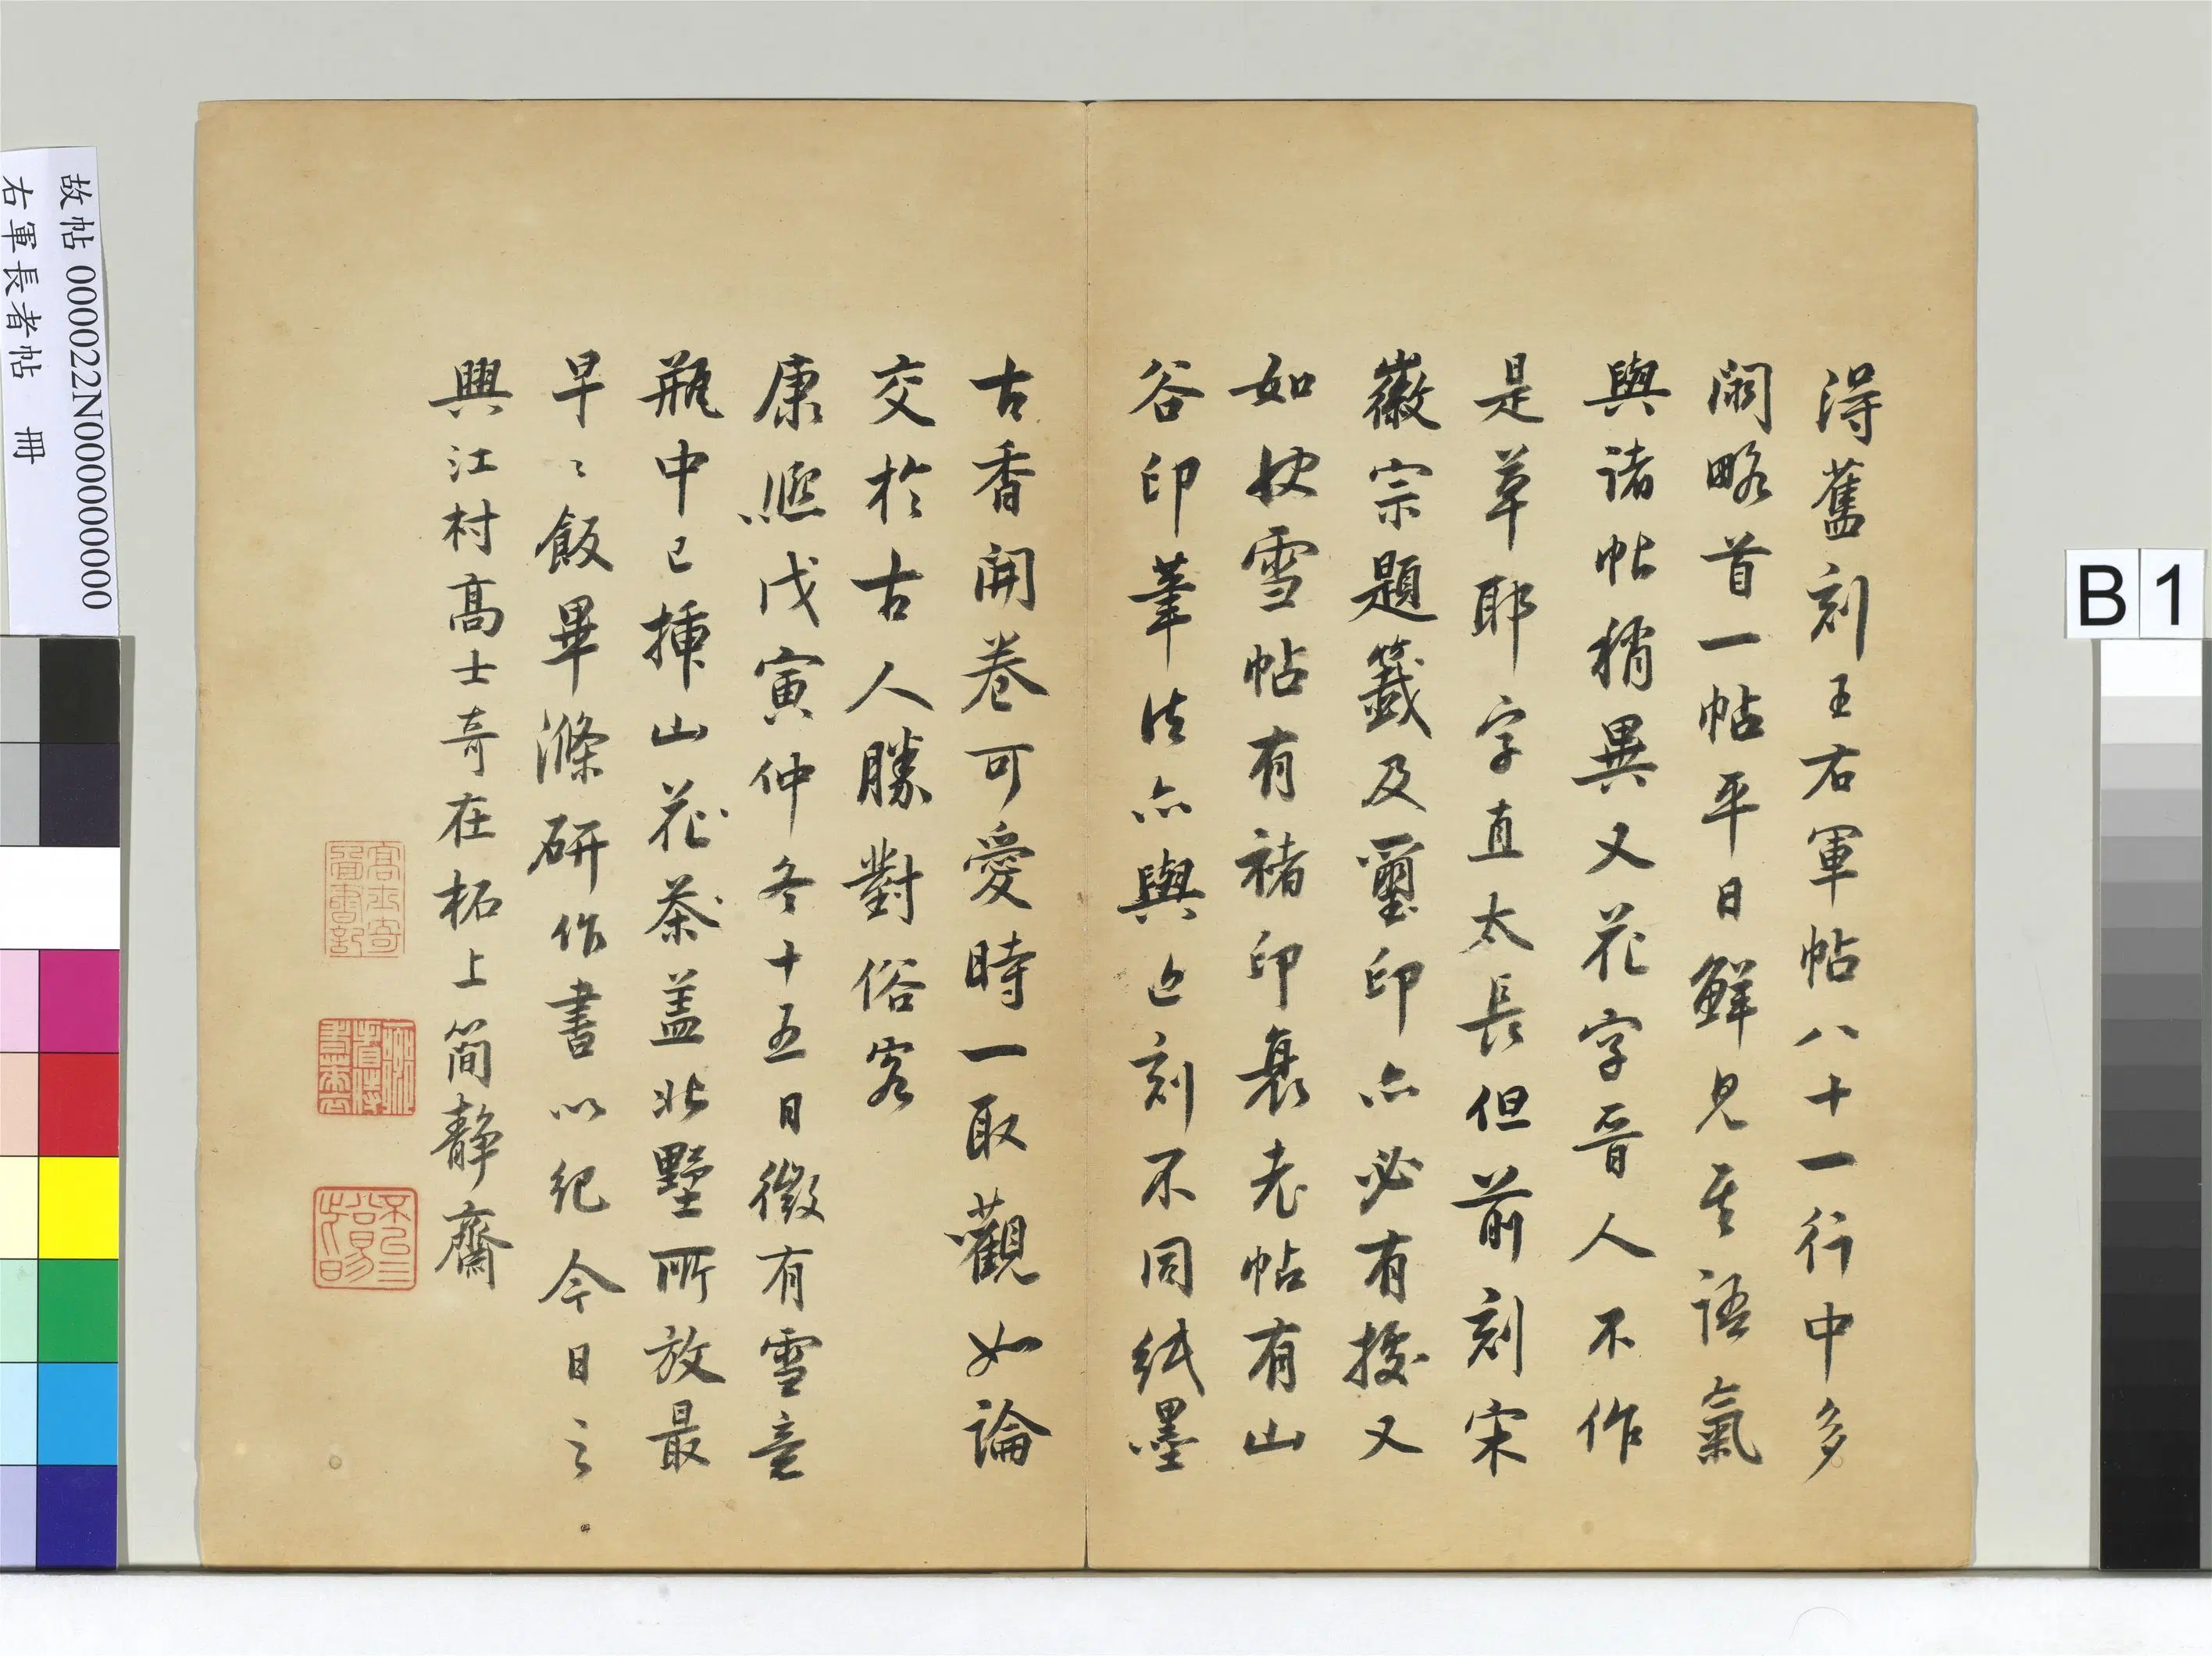 得舊刻王右軍帖八十一行中多
闕略首一帖平日鮮見其語氣
與諸帖稍異又花字晉人不作
是草耶字直太長但前刻宋
徽宗題籤及璽印亦必有據又
如快雪帖有褚印衰老帖有山
谷印筆法亦與近刻不同紙墨
古香開卷可愛時一取觀如論
交於古人勝對俗客
康熙戊寅仲冬十五日微有雪意
瓶中已插山花茶蓋北墅所放最
早〻飯畢滌研作書以紀今日之
興江村高士奇在柘上簡靜齋
高士奇
書記
故帖 000022N000000000
右軍長者帖 冊
B 1